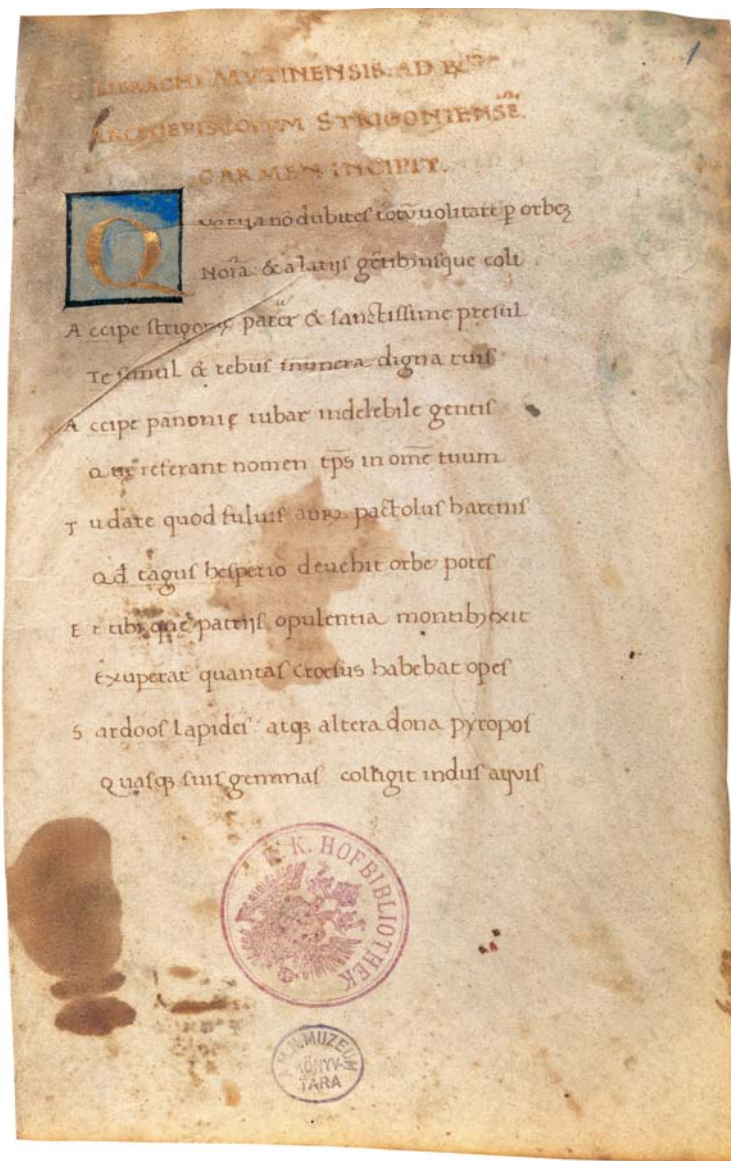 1
MVTINENSIS. AD
ARCHIEPISCOPVM STRIGONIENSĒ.
CARMEN INCIPIT.
Q nō dubites totū uolitare ꝑ orbeꝫ
& a latijs gētibusque coli
A ccipe pater & sanctissime presul
Te simul & rebus munera digna tuis
A ccipe panonię iubar indelebile gentis
Q uę referant nomen tp̄s in omē tuum
T u dare quod fuluis pactolus harenis
Qd̄ tagus hesperio deuehit orbe potes
E t tibi que patrijs opulentia montibꝫ exit
Exuperat quantas Croesus habebat opes
S ardoos Lapides atqꝫ altera dona pyropos
Q uasqꝫ suis gemmas colligit indus aquis
K. HOFBIBLIOTHEK
MUZEUM
KÖNYV-
TÁRA